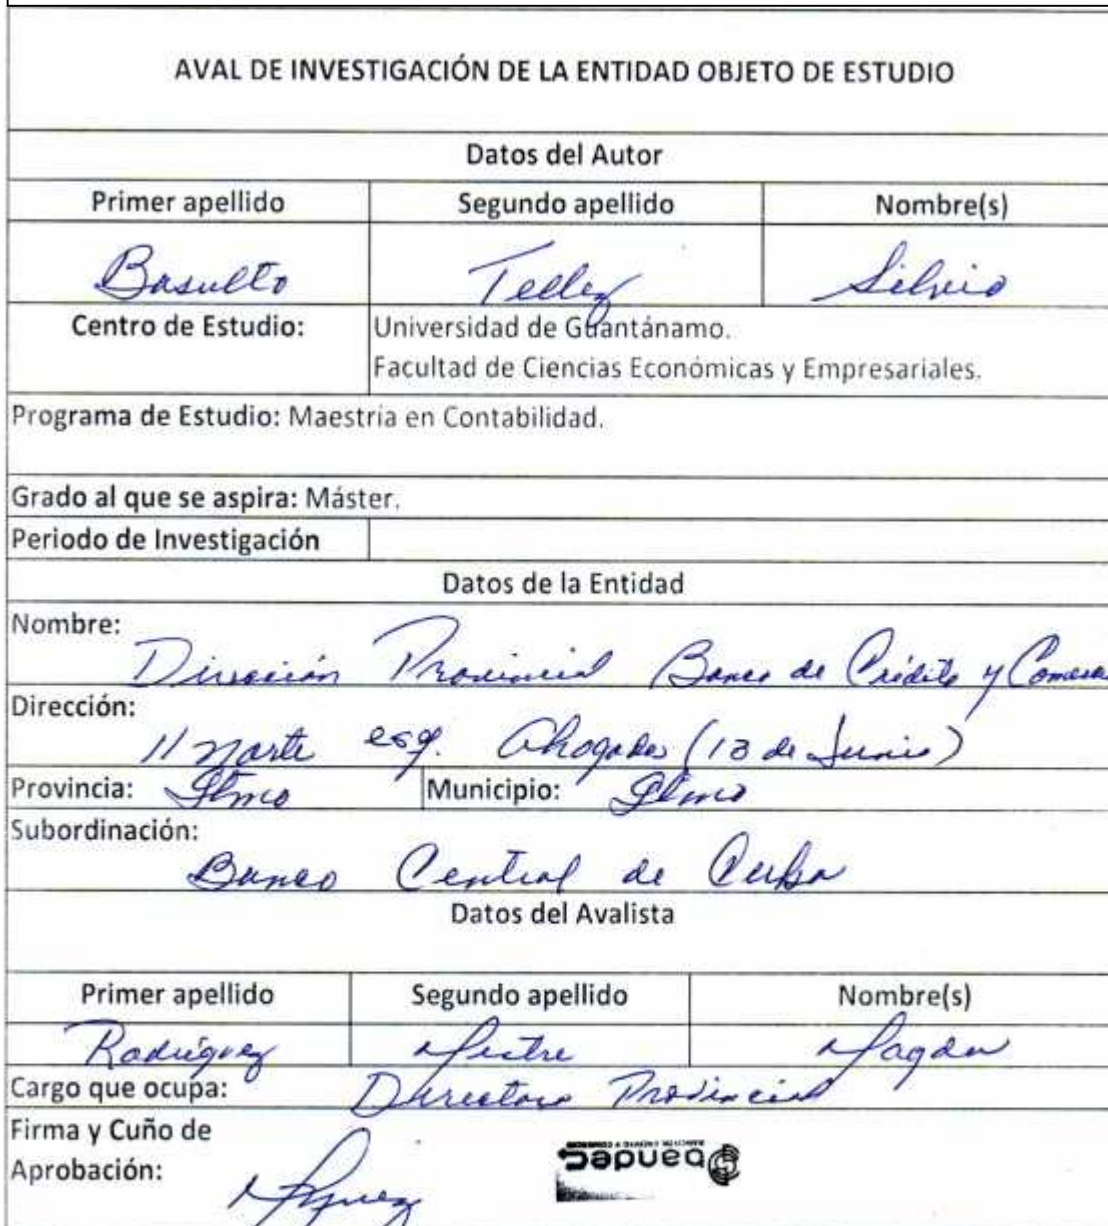 AVAL DE INVESTIGACIÓN DE LA ENTIDAD OBJETO DE ESTUDIO
Datos del Autor
Primer apellido Segundo apellido Nombre(s)
Basulto Tellez Silvio
Centro de Estudio: Universidad de Guantánamo.
Facultad de Ciencias Económicas y Empresariales.
Programa de Estudio: Maestría en Contabilidad.
Grado al que se aspira: Máster.
Periodo de Investigación
Datos de la Entidad
Nombre:
Dirección Provincial Banco de Crédito y
Dirección:
11 norte esq. Ahogados (13 de Junio)
Provincia: Gtmo Municipio: Gtmo
Subordinación:
Banco Central de Cuba
Datos del Avalista
Primer apellido Segundo apellido Nombre(s)
Rodríguez Mestre Magda
Cargo que ocupa: Directora Provincial
Firma y Cuño de
Aprobación:
bandec